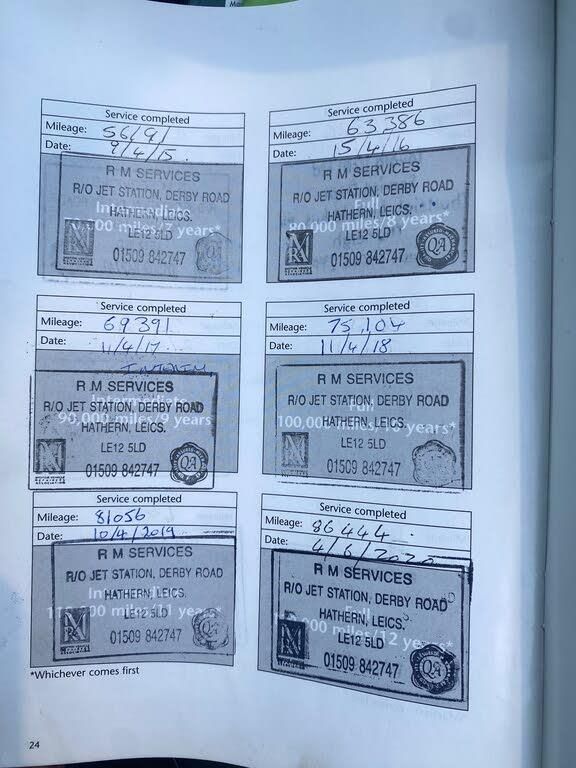 Service completed
Mileage: 56191
Date: 9/4/15.
R M SERVICES
R/O JET STATION, DERBY ROAD
Intermediate
HATHERN, LEICS.
,000 miles/7 years*
LE12 5LD
01509 842747
QA
Service completed
Mileage: 63386
Date: 15/4/16
R M SERVICES
R/O JET STATION, DERBY ROAD
Full
HATHERN, LEICS.
80,000 miles/8 years*
LE12 5LD
01509 842747
QA
Service completed
Mileage: 69391
Date: 11/4/17
R M SERVICES
Intermediate
R/O JET STATION, DERBY ROAD
90,000 miles/9 years
HATHERN, LEICS.
LE12 5LD
01509 842747
QA
Service completed
Mileage: 75,104
Date: 11/4/18
R M SERVICES
R/O JET STATION, DERBY ROAD
Full
100,000 miles/10 years*
HATHERN, LEICS.
LE12 5LD
01509 842747
Service completed
Mileage: 81056
Date: 10/4/2019
R M SERVICES
R/O JET STATION, DERBY ROAD
HATHERN, LEICS.
miles/11 years*
LE12 5LD
01509 842747
QA
Service completed
Mileage: 86444.
Date: 4/6/2020
R M SERVICES
R/O JET STATION, DERBY ROAD
HATHERN, LEICS.
Full
,000 miles/12 years*
LE12 5LD
01509 842747
QA
*Whichever comes first
24